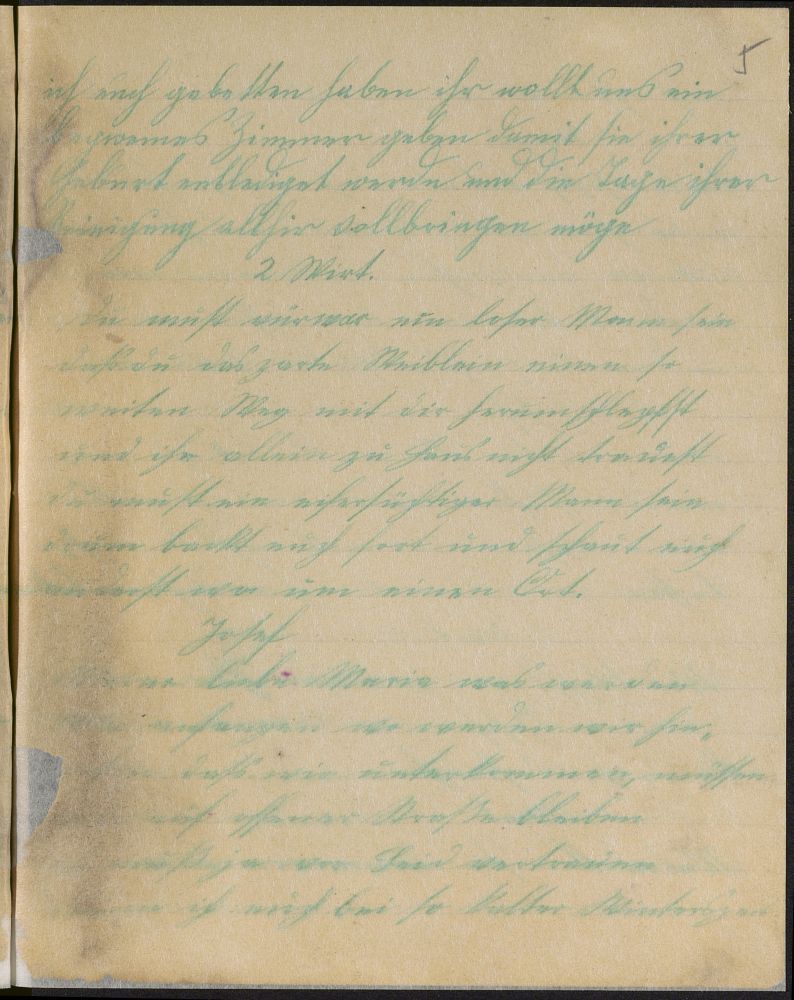 5
ich euch gebetten haben ihr wollt uns ein
beqwemes Zimmer geben damit sie ihrer
Geburt entlediget werde und die Tage ihrer
Reinigung allhir vollbringen möge
2 Wirt.
Du must vürwar ein loser Mann sein
daß du das zarte Weiblein einen so
weiten Weg mit dir herumschleppst
und ihr allein zu Haus nicht trauest
Du must ein eifersüchtiger Mann sein
drum backt euch fort und schaut euch
wo um einen Ort.
Josef
liebe Maria was werden
anfangen wo werden wir hin,
daß wir unterkommen, müssen
auf offener Straße bleiben
ja vor Leid
ich euch bei so kalter